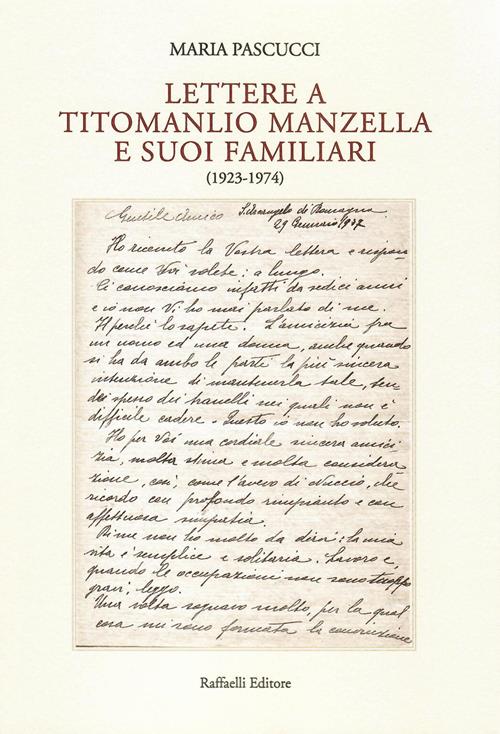 MARIA PASCUCCI
LETTERE A
TITOMANLIO MANZELLA
E SUOI FAMILIARI
(1923-1974)
Gentile Amico S. Arcangelo di Romagna
29 Gennaio 1937
Ho ricevuto la Vostra lettera e rispon-
do come Voi volete: a lungo.
Ci conosciamo infatti da sedici anni
e io non Vi ho mai parlato di me.
Il perché lo sapete. L'amicizia fra
un uomo ed una donna, anche quando
si ha da ambo le parti la più sincera
intenzione di mantenerla tale, ten
de spesso dei tranelli nei quali non è
difficile cadere. Questo io non ho voluto.
Ho per Voi una cordiale sincera amici
zia, molta stima e molta considera
zione, così, come l'avevo di Nuccio, che
ricordo con profondo rimpianto e con
affettuosa simpatia.
Di me non ho molto da dire: la mia
vita è semplice e solitaria. Lavoro e,
quando le occupazioni non sono troppo
gravi, leggo.
Una volta sognavo molto, per la qual
cosa mi sono formata la convinzione
Raffaelli Editore